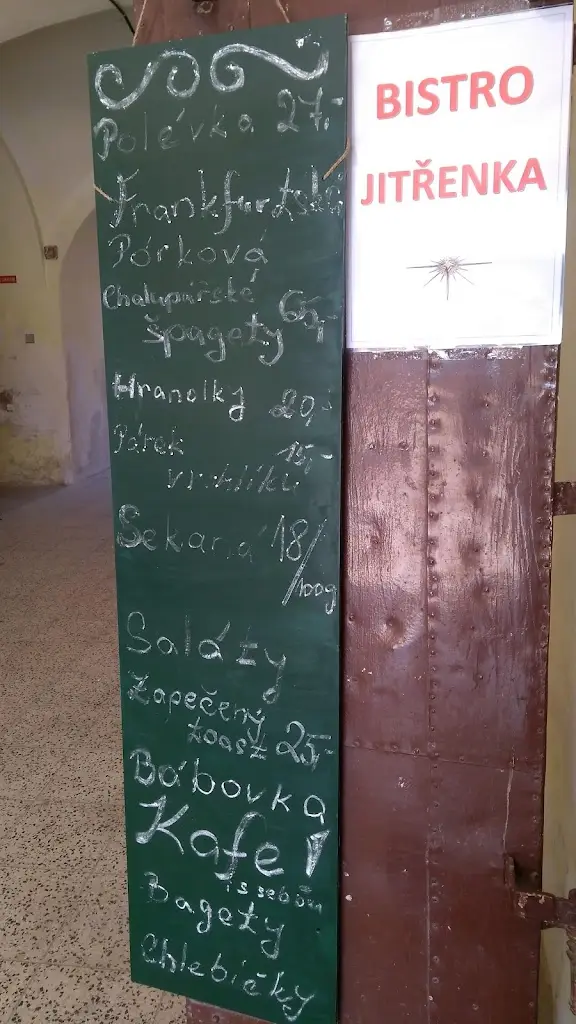 Polévka 27,-
Frankfurtská
Pórková
Chalupářské 65,-
špagety
Hranolky 20,-
Párek 15,-
v rohlíku
Sekaná 18/100g
Saláty
Zapečený
toast 25,-
Bábovka
Kafe!
i s sebou
Bagety
Chlebíčky
BISTRO
JITŘENKA